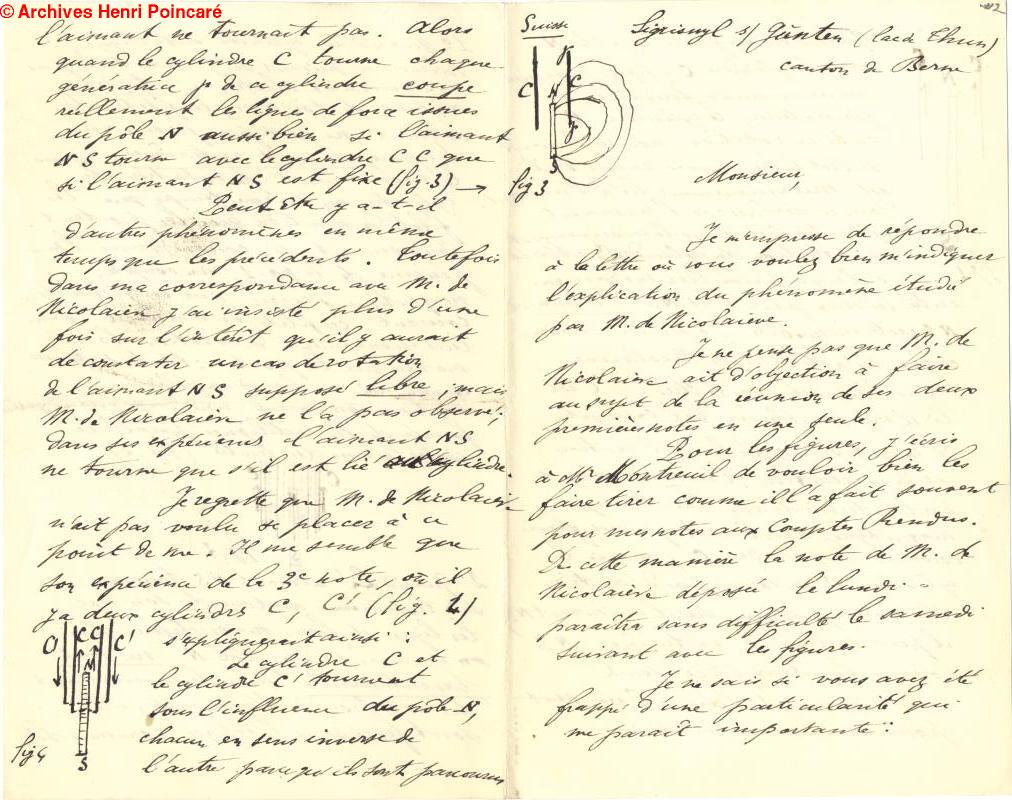 © Archives Henri Poincaré
l'aimant ne tournait pas. Alors
quand le cylindre C tourne chaque
génératrice p de ce cylindre coupe
réellement les lignes de force issues
du pôle N aussi bien si l'aimant
NS tourne avec le cylindre CC que
si l'aimant NS est fixe (fig. 3) →
Peut être y a-t-il
d'autres phénomènes en même
temps que les précédents. Toutefois
dans ma correspondance avec M. de
Nicolaiev j'ai insisté plus d'une
fois sur l'intérêt qu'il y aurait
de constater un cas de rotation
de l'aimant NS supposé libre, mais
M. de Nicolaiev ne l'a pas observé;
dans ses expériences l'aimant NS
ne tourne que s'il est lié au cylindre.
Je regrette que M. de Nicolaiev
n'ait pas voulu se placer à ce
point de vue. Il me semble que
son expérience de la 3e note, où il
y a deux cylindres C, C' (fig. 4)
s'expliquerait ainsi :
Le cylindre C et
le cylindre C' tournent
sous l'influence du pôle N,
chacun en sens inverse de
l'autre parce qu'ils sont parcourus
C' C C C'
N
S
fig 4
Suisse
C N C
p
p
S
fig 3
s/ Günten (lac de Thun)
canton de Berne
Monsieur,
Je m'empresse de répondre
à la lettre où vous voulez bien m'indiquer
l'explication du phénomène étudié
par M. de Nicolaieve.
Je ne pense pas que M. de
Nicolaieve ait d'objection à faire
au sujet de la réunion de ses deux
premières notes en une seule.
Pour les figures, j'écris
à Mr Montreuil de vouloir bien les
faire tirer comme il l'a fait souvent
pour mes notes aux Comptes Rendus.
De cette manière la note de M. de
Nicolaieve déposée le lundi
paraîtra sans difficulté le samedi
suivant avec les figures.
Je ne sais si vous avez été
frappé d'une particularité qui
me paraît importante :